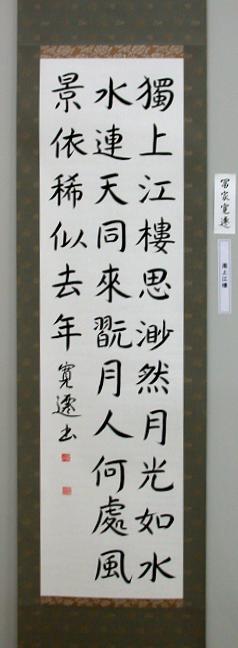 獨上江樓思渺然月光如水
水連天同來翫月人何處風
景依稀似去年 寛遷書
冨家寛遷